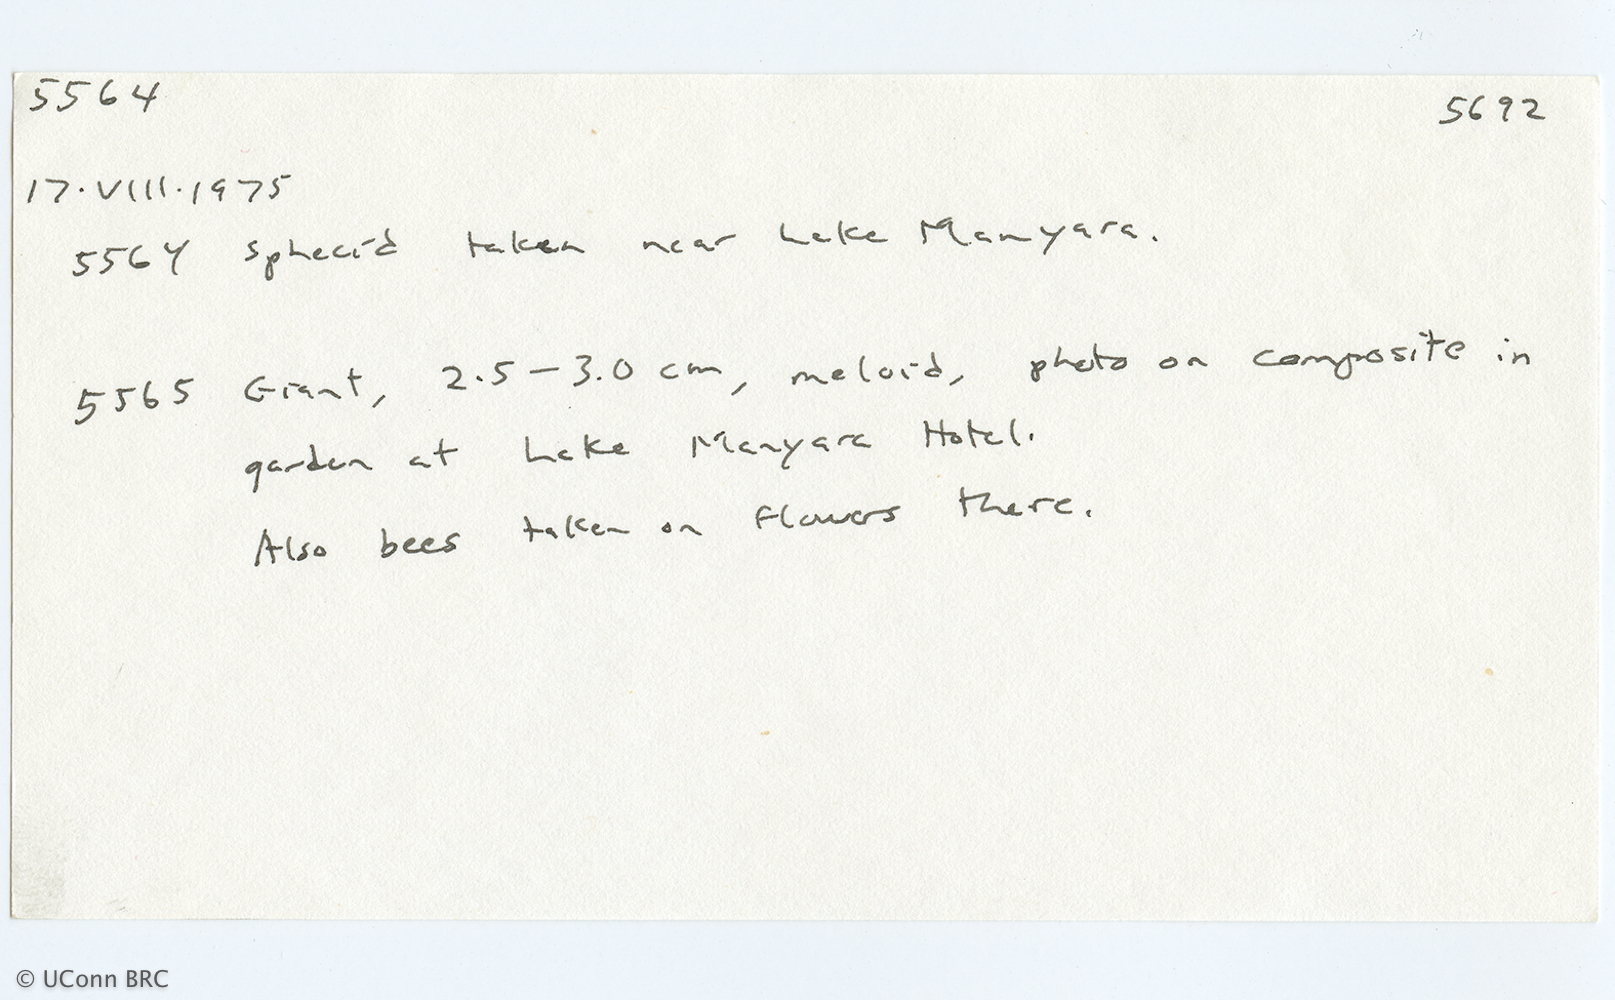 5564
5692
17.VIII.1975
5564 Sphecid taken near Lake Manyara.
5565 Giant, 2.5-3.0 cm, meloid, photo on composite in
garden at Lake Manyara Hotel.
Also bees taken on flowers there.
© UConn BRC